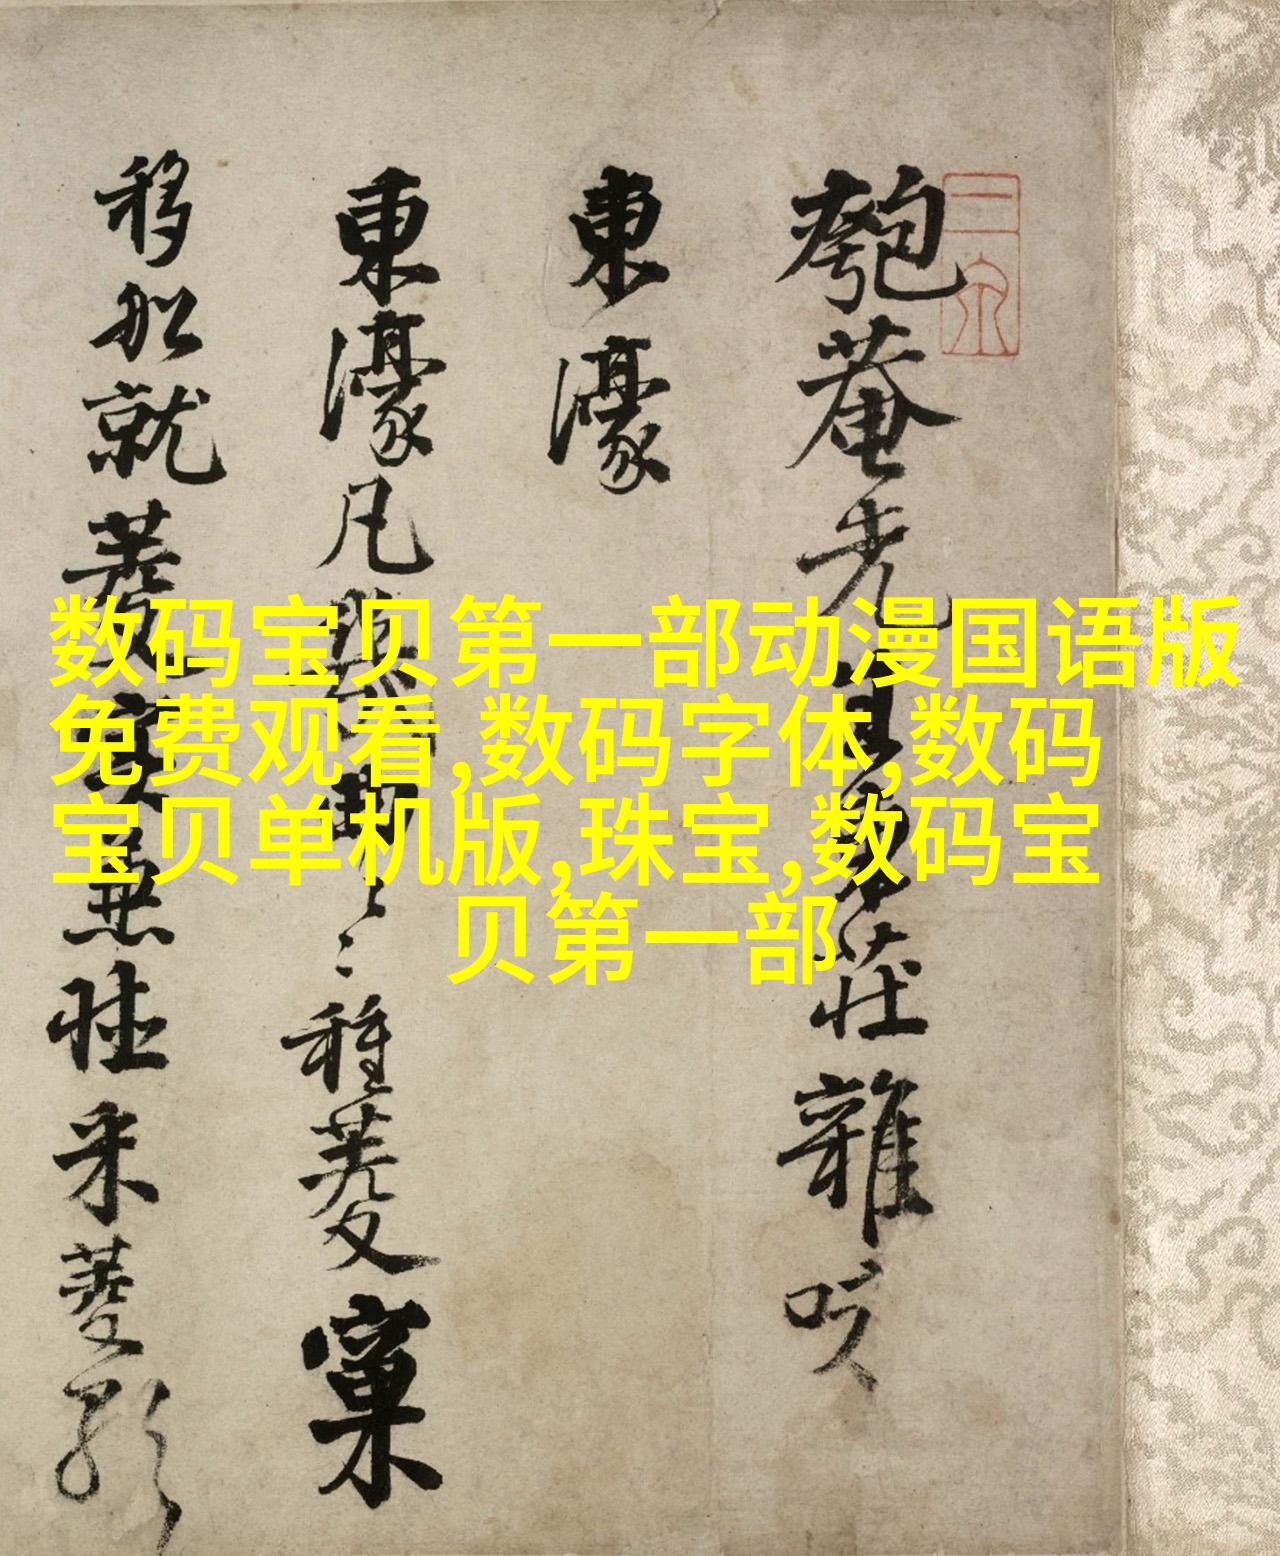 匏菴先生東莊雜咏
東濠
東濠凡曲種菱窠
移船就菱實采菱歌
数码宝贝第一部动漫国语版
免费观看,数码字体,数码
宝贝单机版,珠宝,数码宝
贝第一部